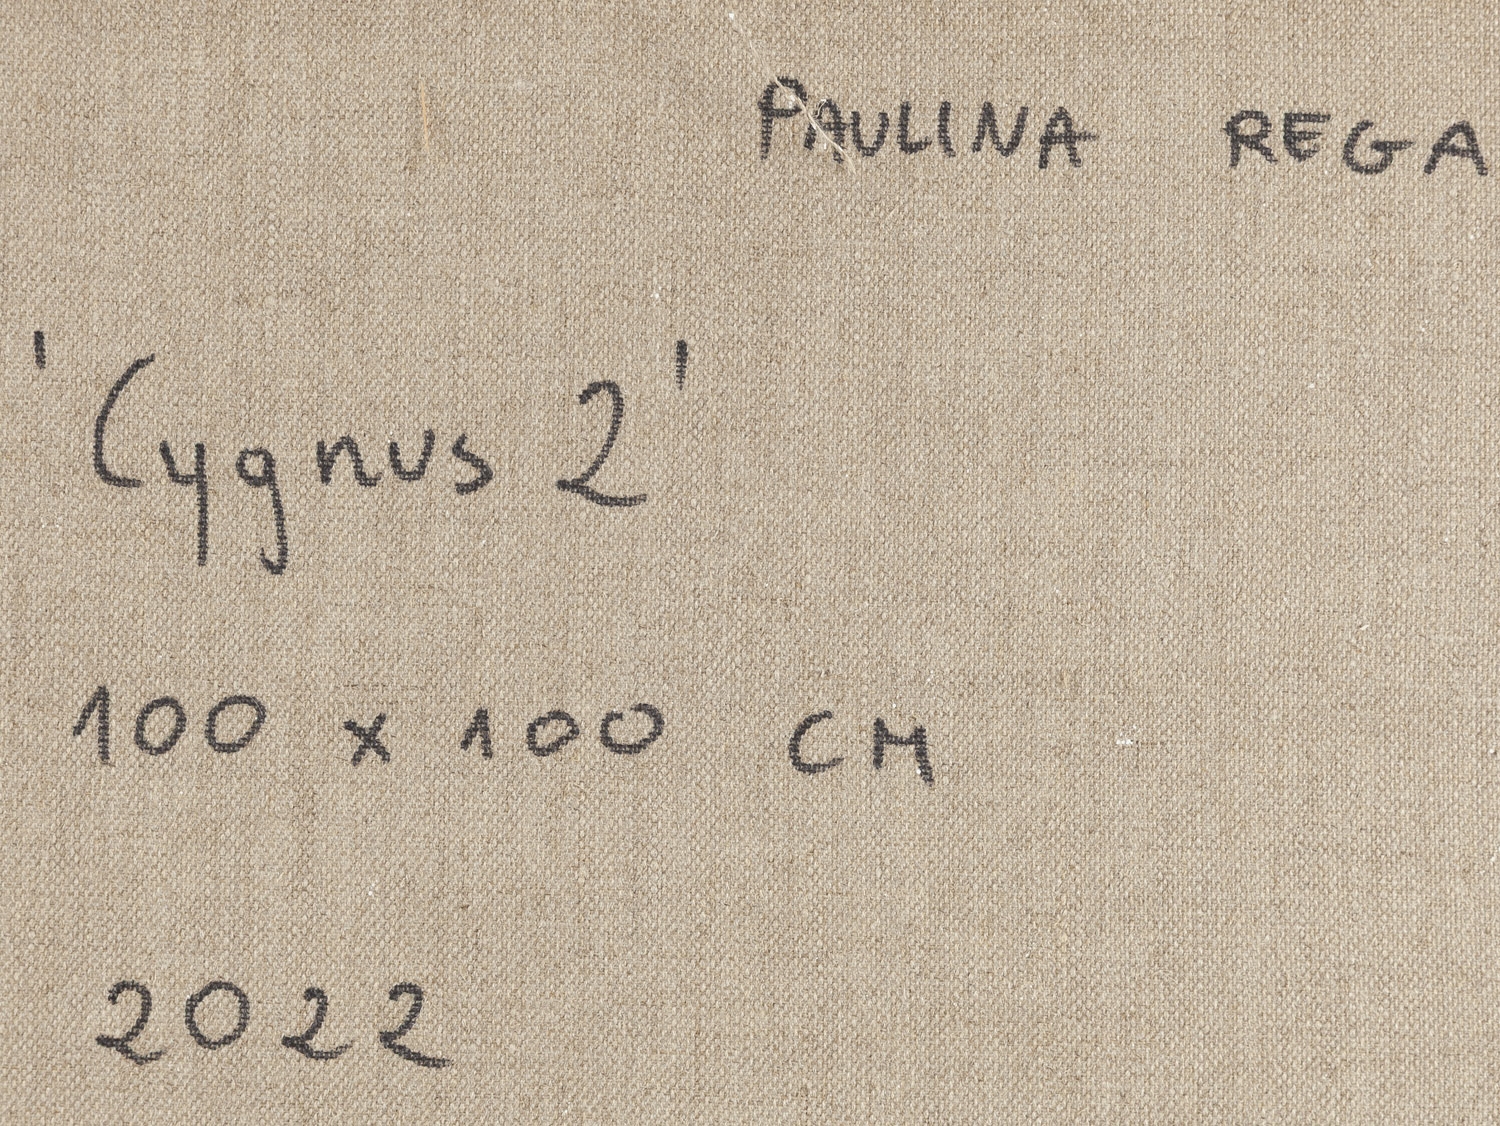 PAULINA REGA
'Cygnus 2'
100 x 100 CM
2022